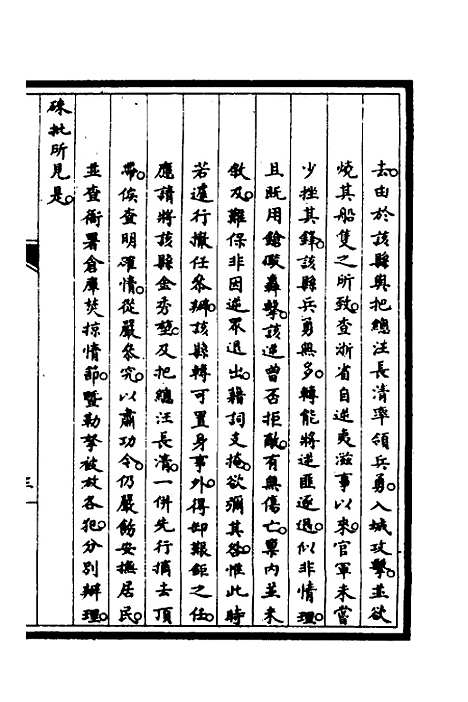 去。由於該縣與把總汪長清率領兵勇。入城攻擊。並欲
燒其船隻之所致。查浙省自逆夷滋事以來。官軍未嘗
少挫其鋒。該縣兵勇無多。轉能將逆匪逐退。似非情理。
且既用鎗礮轟擊。該逆曾否拒敵。有無傷亡。稟內並未
敘及。難保非因逆眾退出。藉詞支掩。欲彌其咎。惟此時
若遽行撤任叅辦。該縣轉可置身事外。得卸艱鉅之任。
應請將該縣金秀堃。及把總汪長清。一併先行摘去頂
帶。俟查明確情。從嚴叅究。以肅功令。仍嚴飭安撫居民。
並查衙署倉庫焚掠情節。暨勒拏被放各犯。分別辦理。
硃批所見是。
三